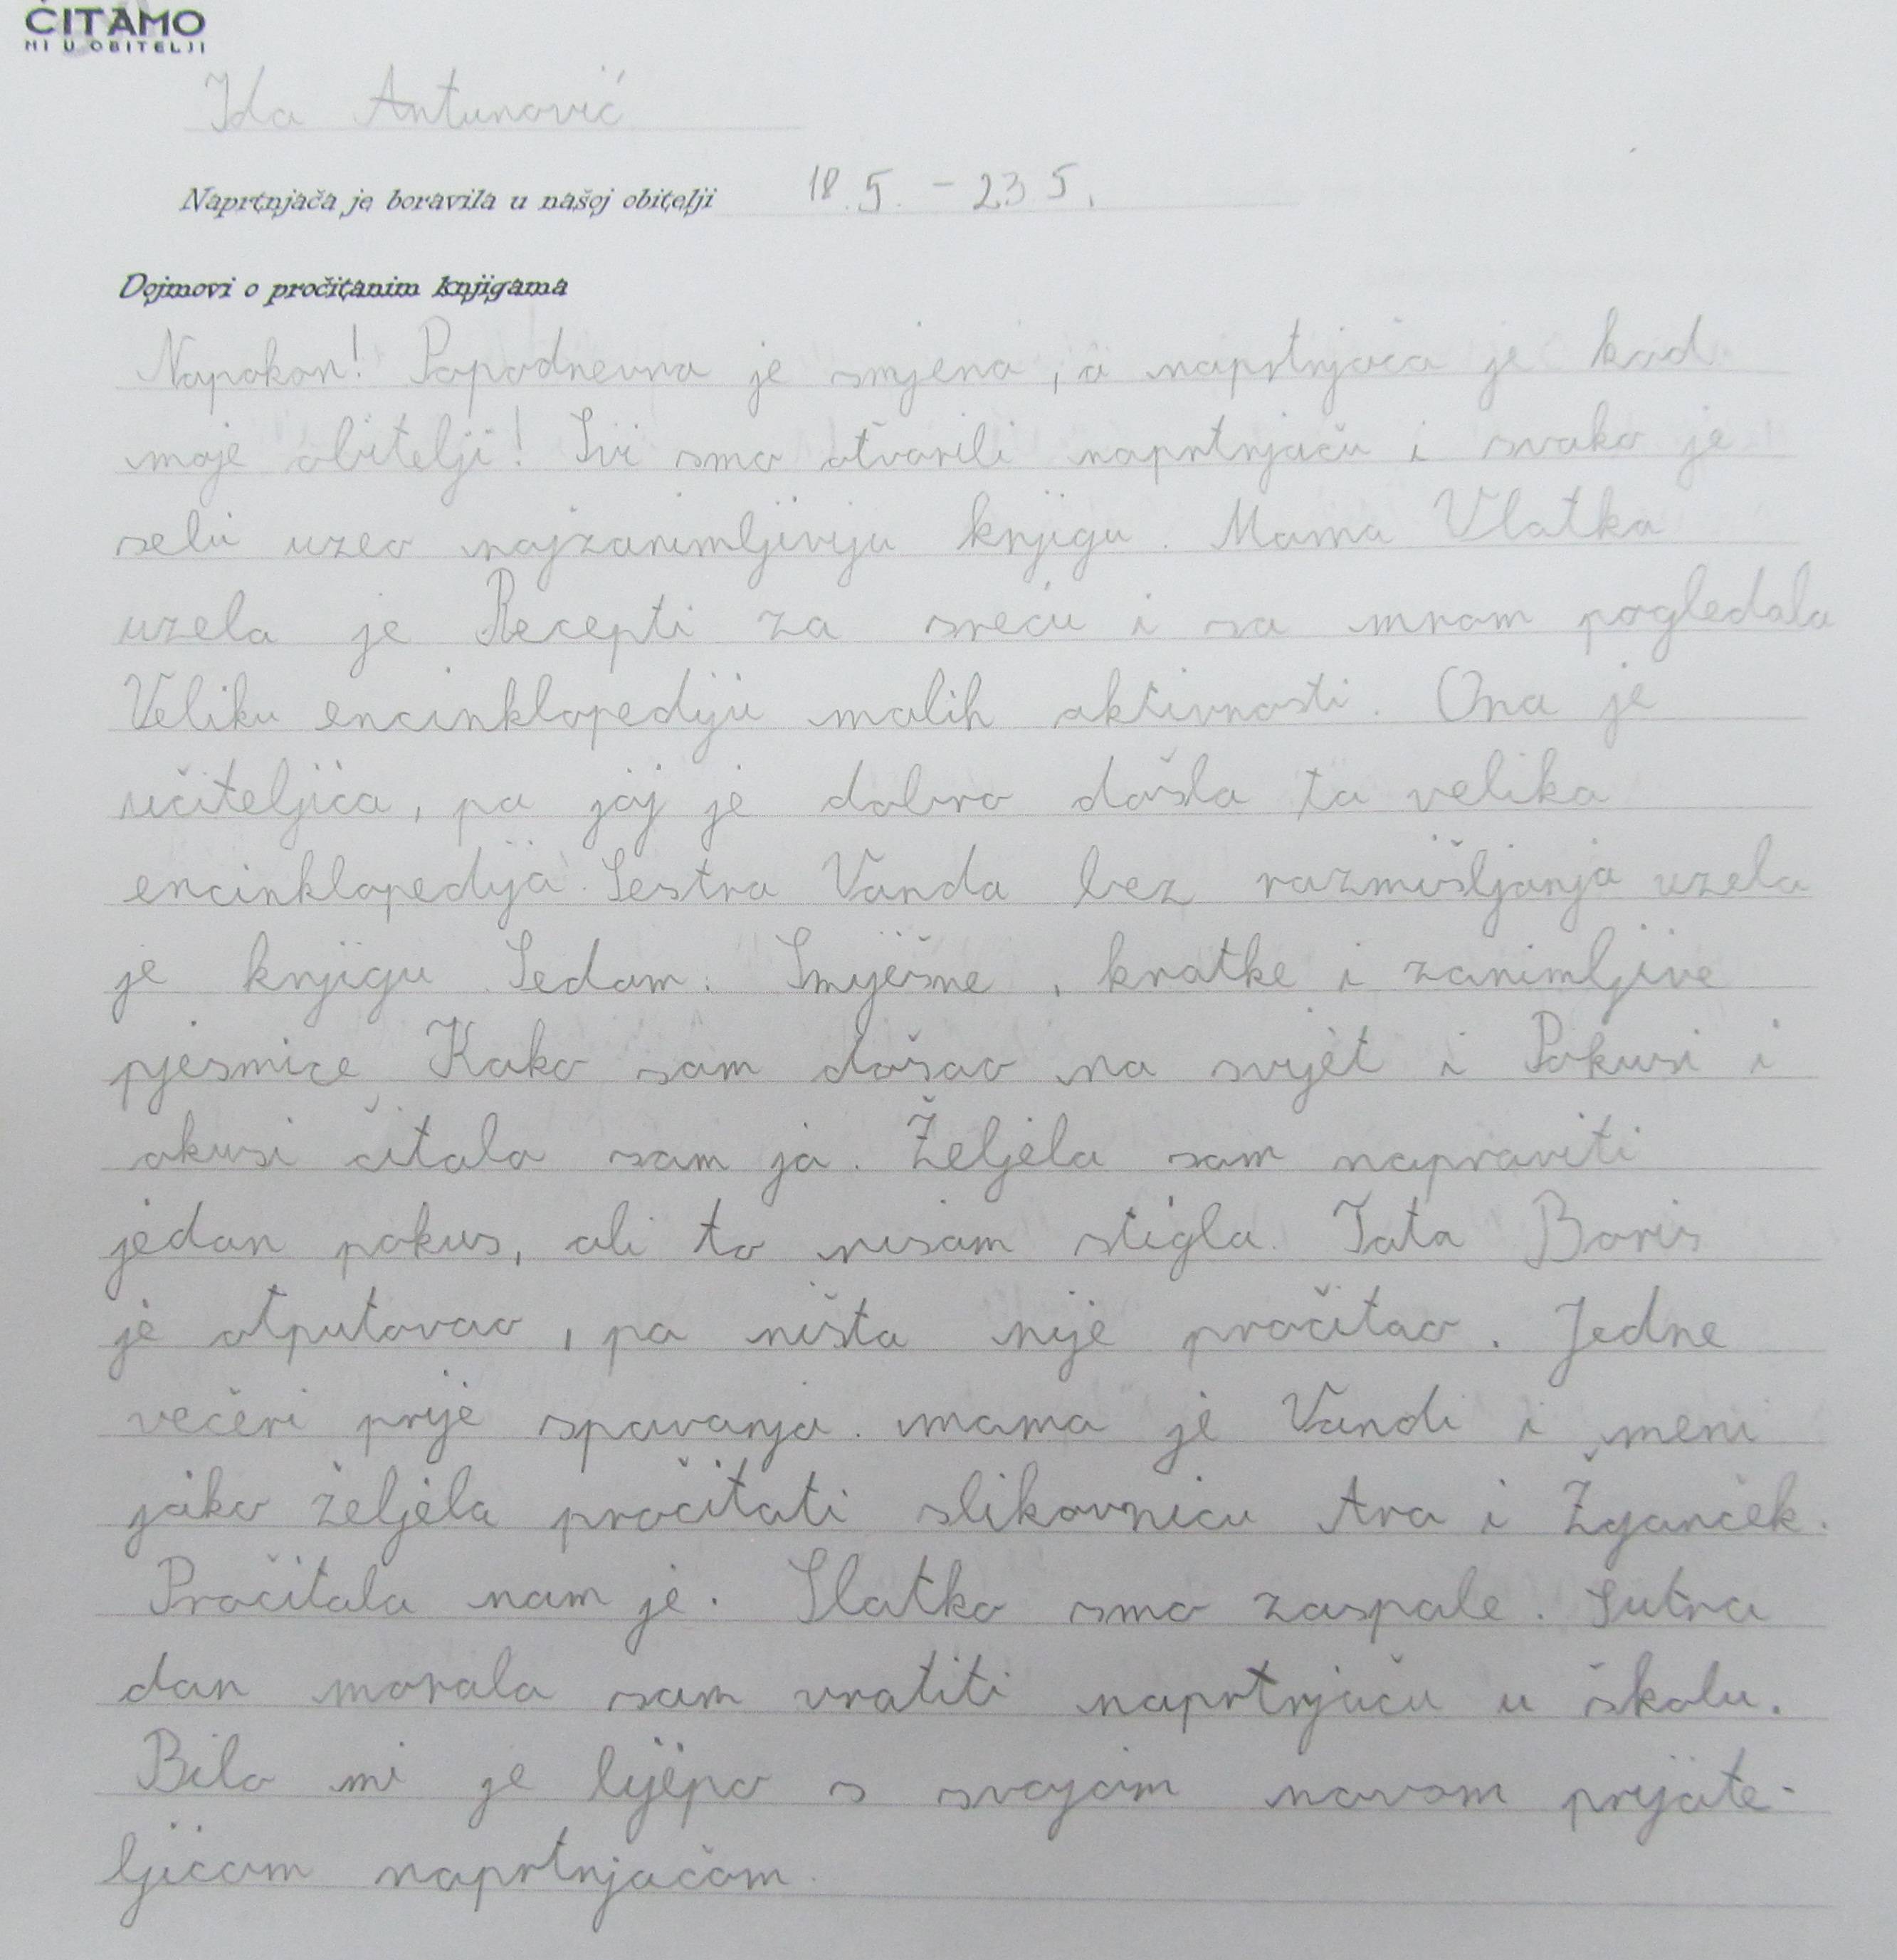 ČITAMO
MI U OBITELJI
Ida Antunović
Naprtnjača je boravila u našoj obitelji 18.5. - 23 5.
Dojmovi o pročitanim knjigama
Napokon! Popodnevna je smjena, a naprtnjača je kod
moje obitelji! Svi smo otvorili naprtnjaču i svako je
sebi uzeo najzanimljiviju knjigu. Mama Vlatka
uzela je Recepti za sreću i sa mnom pogledala
Veliku encinklopediju malih aktivnosti. Ona je
učiteljica, pa joj je dobro došla ta velika
encinklopedija. Sestra Vanda bez razmišljanja uzela
je knjigu Sedam. Smiješne, kratke i zanimljive
pjesmice Kako sam došao na svijet i Pokusi i
okusi čitala sam ja. Željela sam napraviti
jedan pokus, ali to nisam stigla. Tata Boris
je otputovao, pa ništa nije pročitao. Jedne
večeri prije spavanja mama je Vandi i meni
jako željela pročitati slikovnicu Ara i Žganček.
Pročitala nam je. Slatko smo zaspale. Sutra
dan morala sam vratiti naprtnjaču u školu.
Bilo mi je lijepo s svojom novom prijate-
ljicom naprtnjačom.